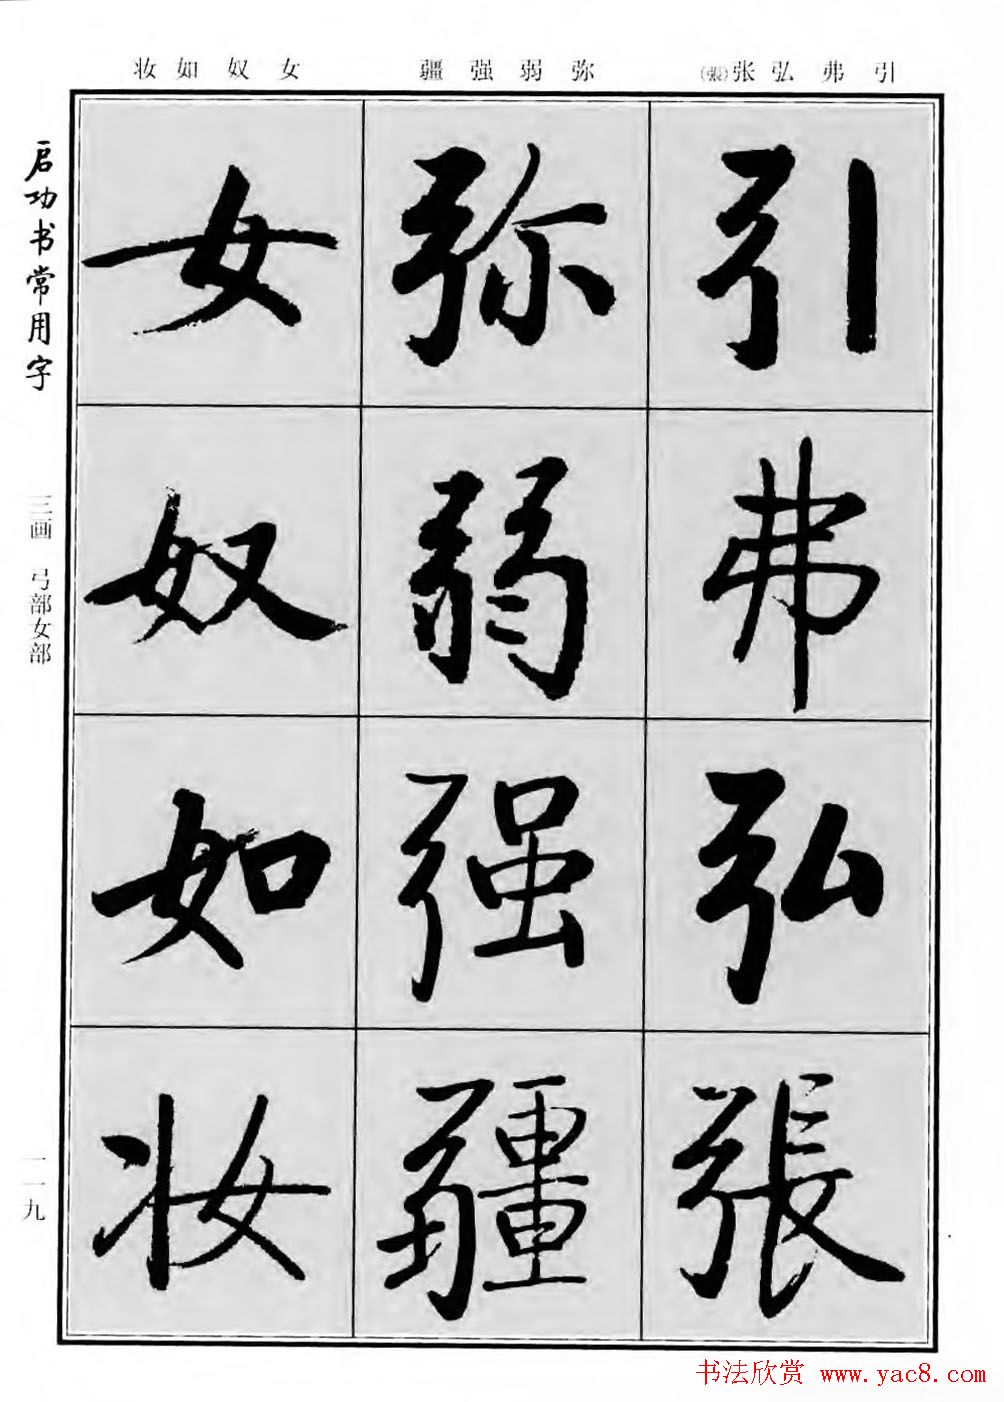 引 弗 弘 张(張)
弥 弱 强 疆
女 奴 如 妆
启功书常用字
三画 弓部女部
一一九
引 弗 弘 張
弥 弱 强 疆
女 奴 如 妆
书法欣赏 www.yac8.com